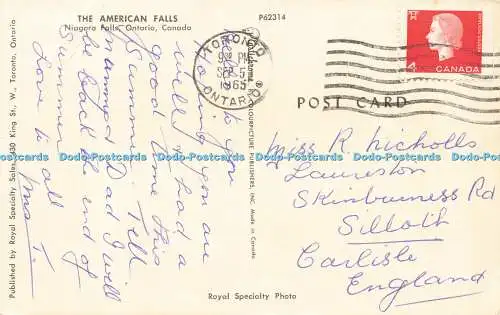 THE AMERICAN FALLS
Niagara Falls, Ontario, Canada
P62314
Published by Royal Specialty Sales, 430 King St., W., Toronto, Ontario
COLOURPICTURE PUBLISHERS, INC. Made in Canada
TORONTO
PM
SEP 5
1965
ONTARIO
CANADA
4
POST CARD
Hello to you
Hoping you are
well & had a
good time this
summer. Tell
mam & Dad I will
be back at end of
Summer
Love to all
Mrs T.
Miss R Nicholls
Laureston
Skinburness Rd
Silloth
Carlisle
England
Royal Specialty Photo
Dodo-Postcards Dodo-Postcards Dodo-Postcards Dodo-Postcards Dodo-Postcards Dodo-Postcards